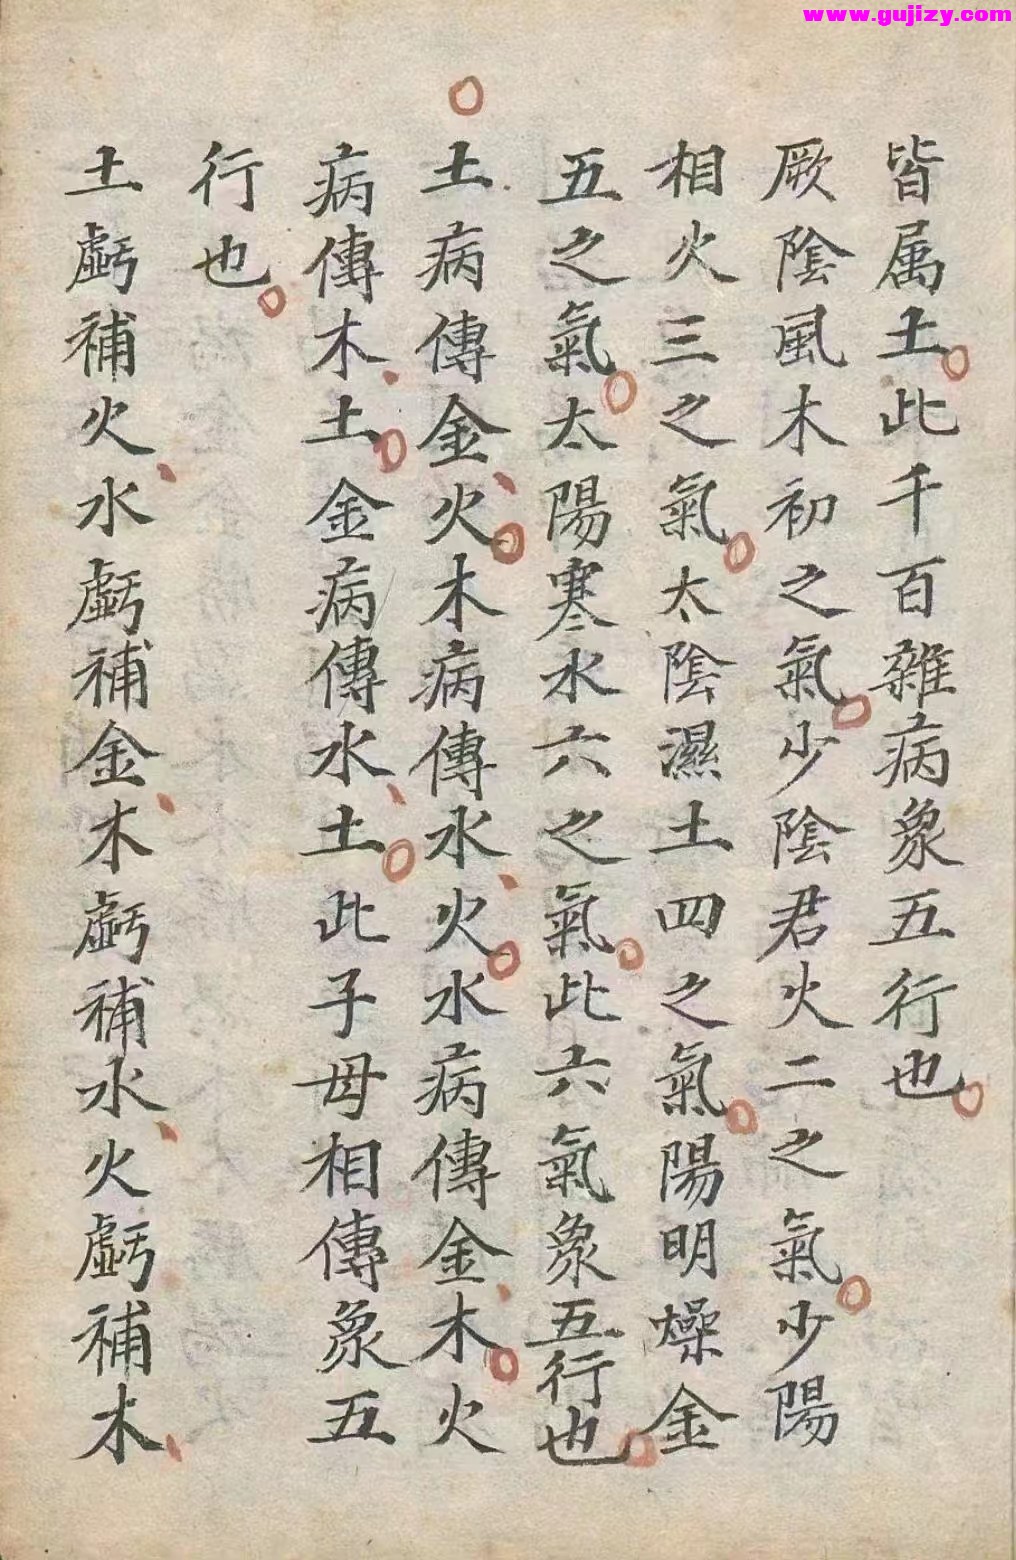 www.gujizy.com
皆属土此千百雜病象五行也
厥陰風木初之氣少陰君火二之氣少陽
相火三之氣太陰濕土四之氣陽明燥金
五之氣太陽寒水六之氣此六氣象五行也
土病傳金火木病傳水火水病傳金木火
病傳木土金病傳水土此子母相傳象五
行也
土虧補火水虧補金木虧補水火虧補木